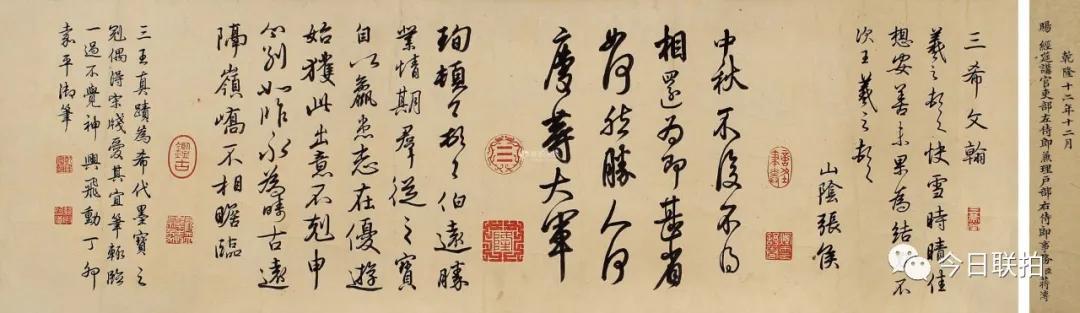 乾隆十二年十二月
賜 經筵講官吏部左侍郎兼理戶部右侍郎事務臣蔣溥
三希文翰
羲之頓首快雪時晴佳
想安善未果為結不
次王羲之頓首
山陰張侯
中秋不復不得
相還為即甚省
如何然勝人何
慶等大軍
珣頓首頓首伯遠勝
業情期羣從之寶
自以羸患志在優遊
始獲此出意不剋申
分別如昨永為疇古遠
隔嶺嶠不相瞻臨
三王真蹟為希代墨寶之
冠偶得宋牋愛其宜筆輒臨
一過不覺神興飛動丁卯
嘉平御筆
鑑古
今日联拍